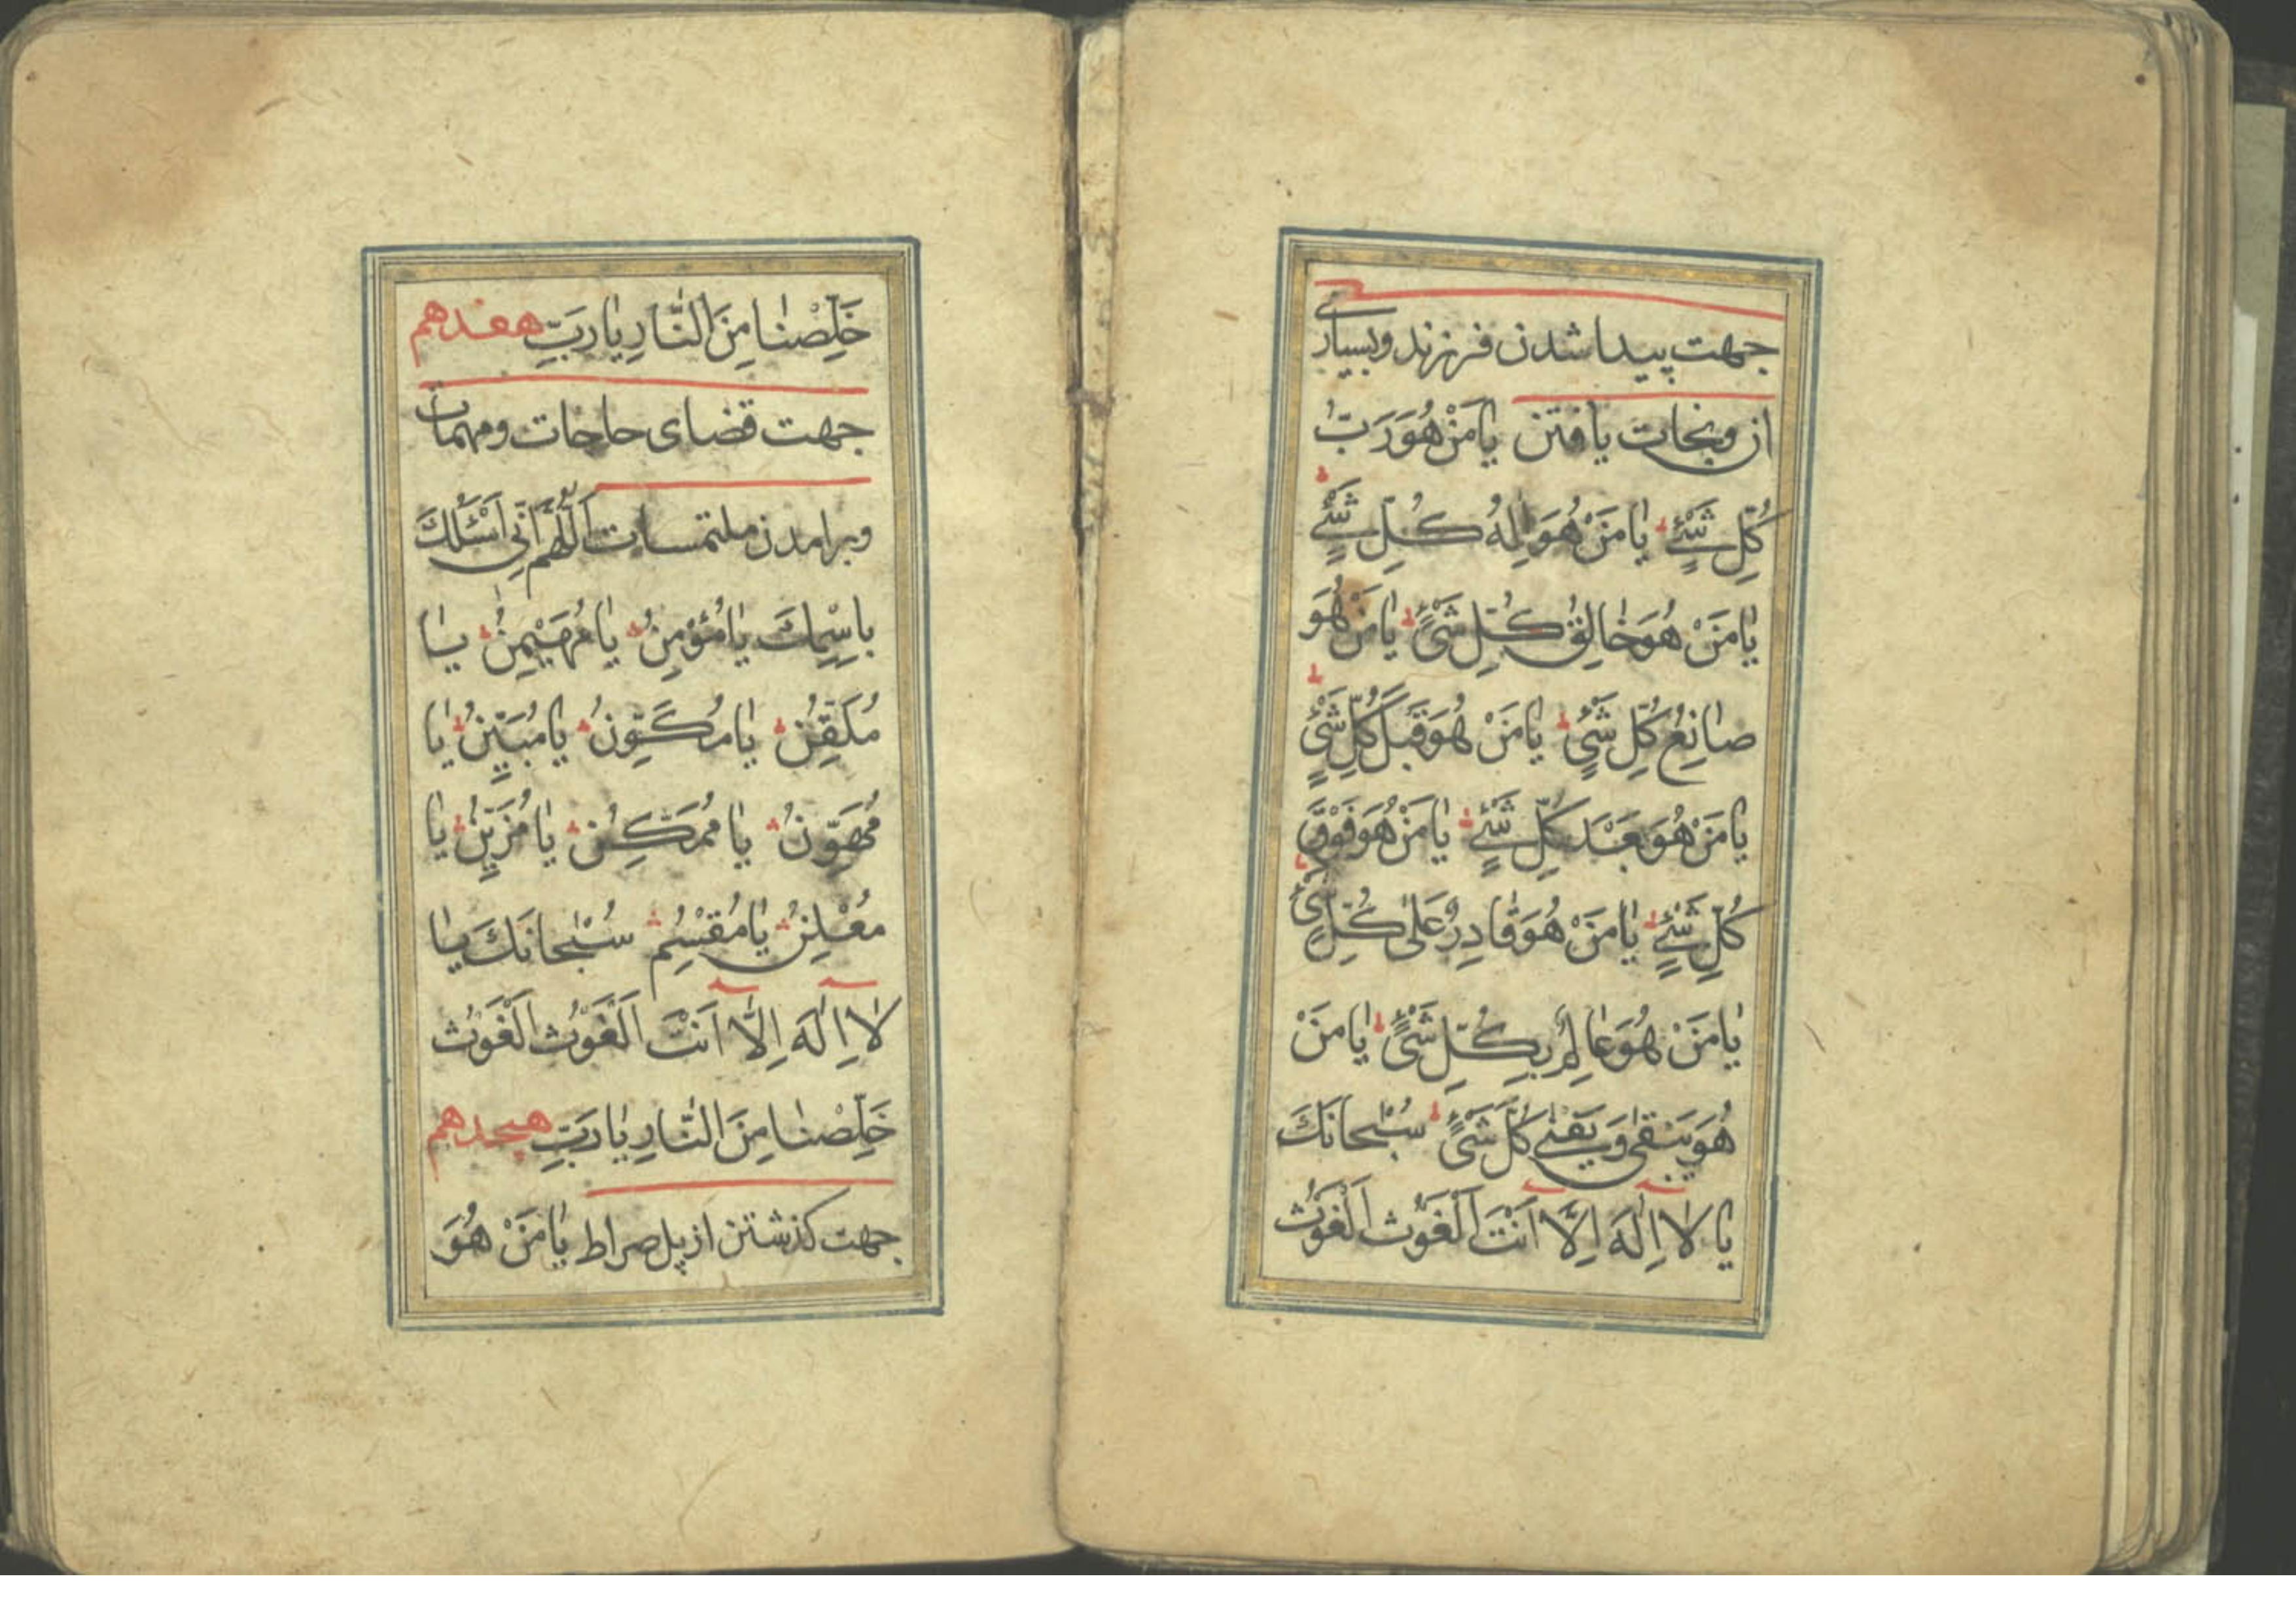 جهت پیدا شدن فرزند و بسیاری
ان و نجات یافتن یا مَنْ هُوَ رَبُّ
كُلِّ شَيْءٍ یا مَنْ هُوَ اِلٰهُ كُلِّ شَيْءٍ
یا مَنْ هُوَ خالِقُ كُلِّ شَيْءٍ یا مَنْ هُوَ
صانِعُ كُلِّ شَيْءٍ یا مَنْ هُوَ قَبْلَ كُلِّ شَيْءٍ
یا مَنْ هُوَ بَعْدَ كُلِّ شَيْءٍ یا مَنْ هُوَ فَوْقَ
كُلِّ شَيْءٍ یا مَنْ هُوَ قادِرٌ عَلىٰ كُلِّ شَيْءٍ
یا مَنْ هُوَ عالِمٌ بِكُلِّ شَيْءٍ یا مَنْ
هُوَ یَبْقىٰ وَ یَفْنىٰ كُلُّ شَيْءٍ سُبْحانَكَ
یا لا اِلٰهَ اِلّا اَنْتَ اَلْغَوْثَ الْغَوْثَ
خَلِّصْنا مِنَ النّارِ یا رَبِّ هفدهم
جهت قضای حاجات و مهمات
و برامدن ملتمسات اَللّٰهُمَّ اِنّي اَسْئَلُكَ
بِاسْمِكَ یا مُؤْمِنُ یا مُهَیْمِنُ یا
مُكَقِّنُ یا مُكَوِّنُ یا مُبَیِّنُ یا
مُهَوِّنُ یا مُمَكِّنُ یا مُزَیِّنُ یا
مُعْلِنُ یا مُقْسِمُ سُبْحانَكَ یا
لا اِلٰهَ اِلّا اَنْتَ اَلْغَوْثَ الْغَوْثَ
خَلِّصْنا مِنَ النّارِ یا رَبِّ هیجدهم
جهت كذشتن از پل صراط یا مَنْ هُوَ